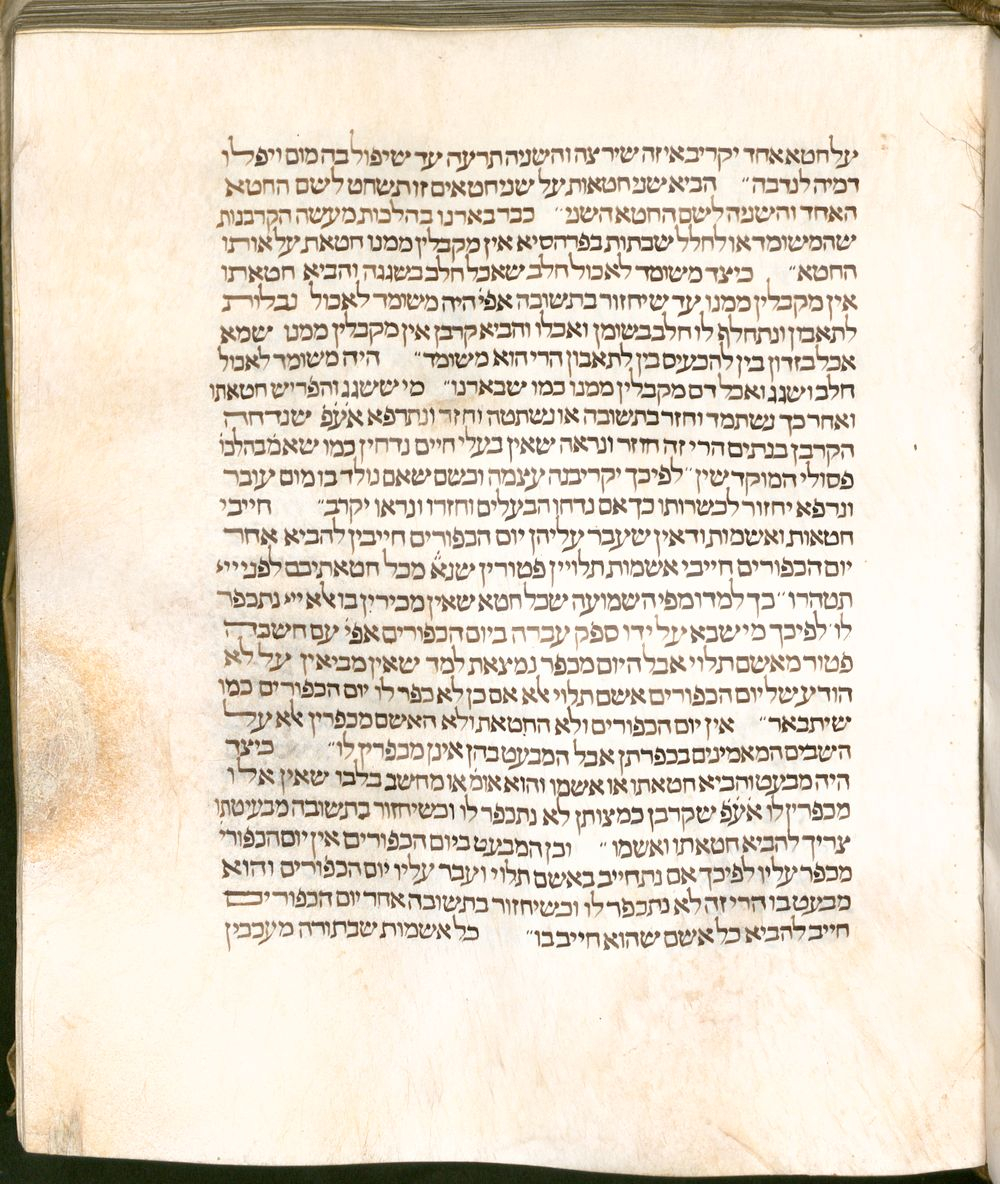 על חטא אחד יקריב אי זה שירצה והשניה תרעה עד שיפול בה מום ויפלו
דמיה לנדבה״ הביא שני חטאות על שני חטאים זו תשחט לשם החטא
האחד והשניה לשם החטא השני״ כבר בארנו בהלכות מעשה הקרבנות
שהמשומד או לחלל שבתות בפרהסיא אין מקבלין ממנו חטאת על אותו
החטא״ כיצד משומד לאכול חלב שאכל חלב בשגגה והביא חטאתו
אין מקבלין ממנו עד שיחזור בתשובה אפי׳ היה משומד לאכול נבלות
לתאבון ונתחלף לו חלב בשומן ואכלו והביא קרבן אין מקבלין ממנו שמא
אכל בזדון בין להכעיס בין לתאבון הרי הוא משומד״ היה משומד לאכול
חלב ושגג ואכל דם מקבלין ממנו כמו שבארנו״ מי ששגג והפריש חטאתו
ואחר כך נשתמד וחזר בתשובה או נשתטה וחזר ונתרפא אע֗פ֗ שנדחה
הקרבן בנתים הרי זה חוזר ונראה שאין בעלי חיים נדחין כמו שאמ֗ בהלכו׳
פסולי המוקדשין״ לפיכך יקריבנה עצמה וכשם שאם נולד בו מום עובר
ונרפא יחזור לכשרותו כך אם נדחו הבעלים וחזרו ונראו יקרב״ חייבי
חטאות ואשמות ודאין שעבר עליהן יום הכפורים חייבין להביא אחר
יום הכפורים חייבי אשמות תלויין פטורין שנא֗ מכל חטאתיכם לפני ייי
תטהרו״ כך למדו מפי השמועה שכל חטא שאין מכירין בו אלא ייי נתכפר
לו׳ לפיכך מי שבא על ידו ספק עברה ביום הכפורים אפי׳ עם חשכה
פטור מאשם תלוי אבל היום מכפר נמצאת למד שאין מביאין על לא
הודע של יום הכפורים אשם תלוי אלא אם כן לא כפר לו יום הכפורים כמו
שיתבאר״ אין יום הכפורים ולא החטאת ולא האשם מכפרין אלא על
השבים המאמינים בכפרתן אבל המבעט בהן אינן מכפרין לו״ כיצד
היה מבעט והביא חטאתו או אשמו והוא אומ֗ או מחשב בלבו שאין אלו
מכפרין לו אע֗פ֗ שקרבן כמצותן לא נתכפר לו וכשיחזור בתשובה מבעיטתו
צריך להביא חטאתו ואשמו״ וכן המבעט ביום הכפורים אין יום הכפורי׳
מכפר עליו לפיכך אם נתחייב באשם תלוי ועבר עליו יום הכפורים והוא
מבעט בו הרי זה לא נתכפר לו וכשיחזור בתשובה אחר יום הכפורים
חייב להביא כל אשם שהוא חייב בו״ כל אשמות שבתורה מעכבין